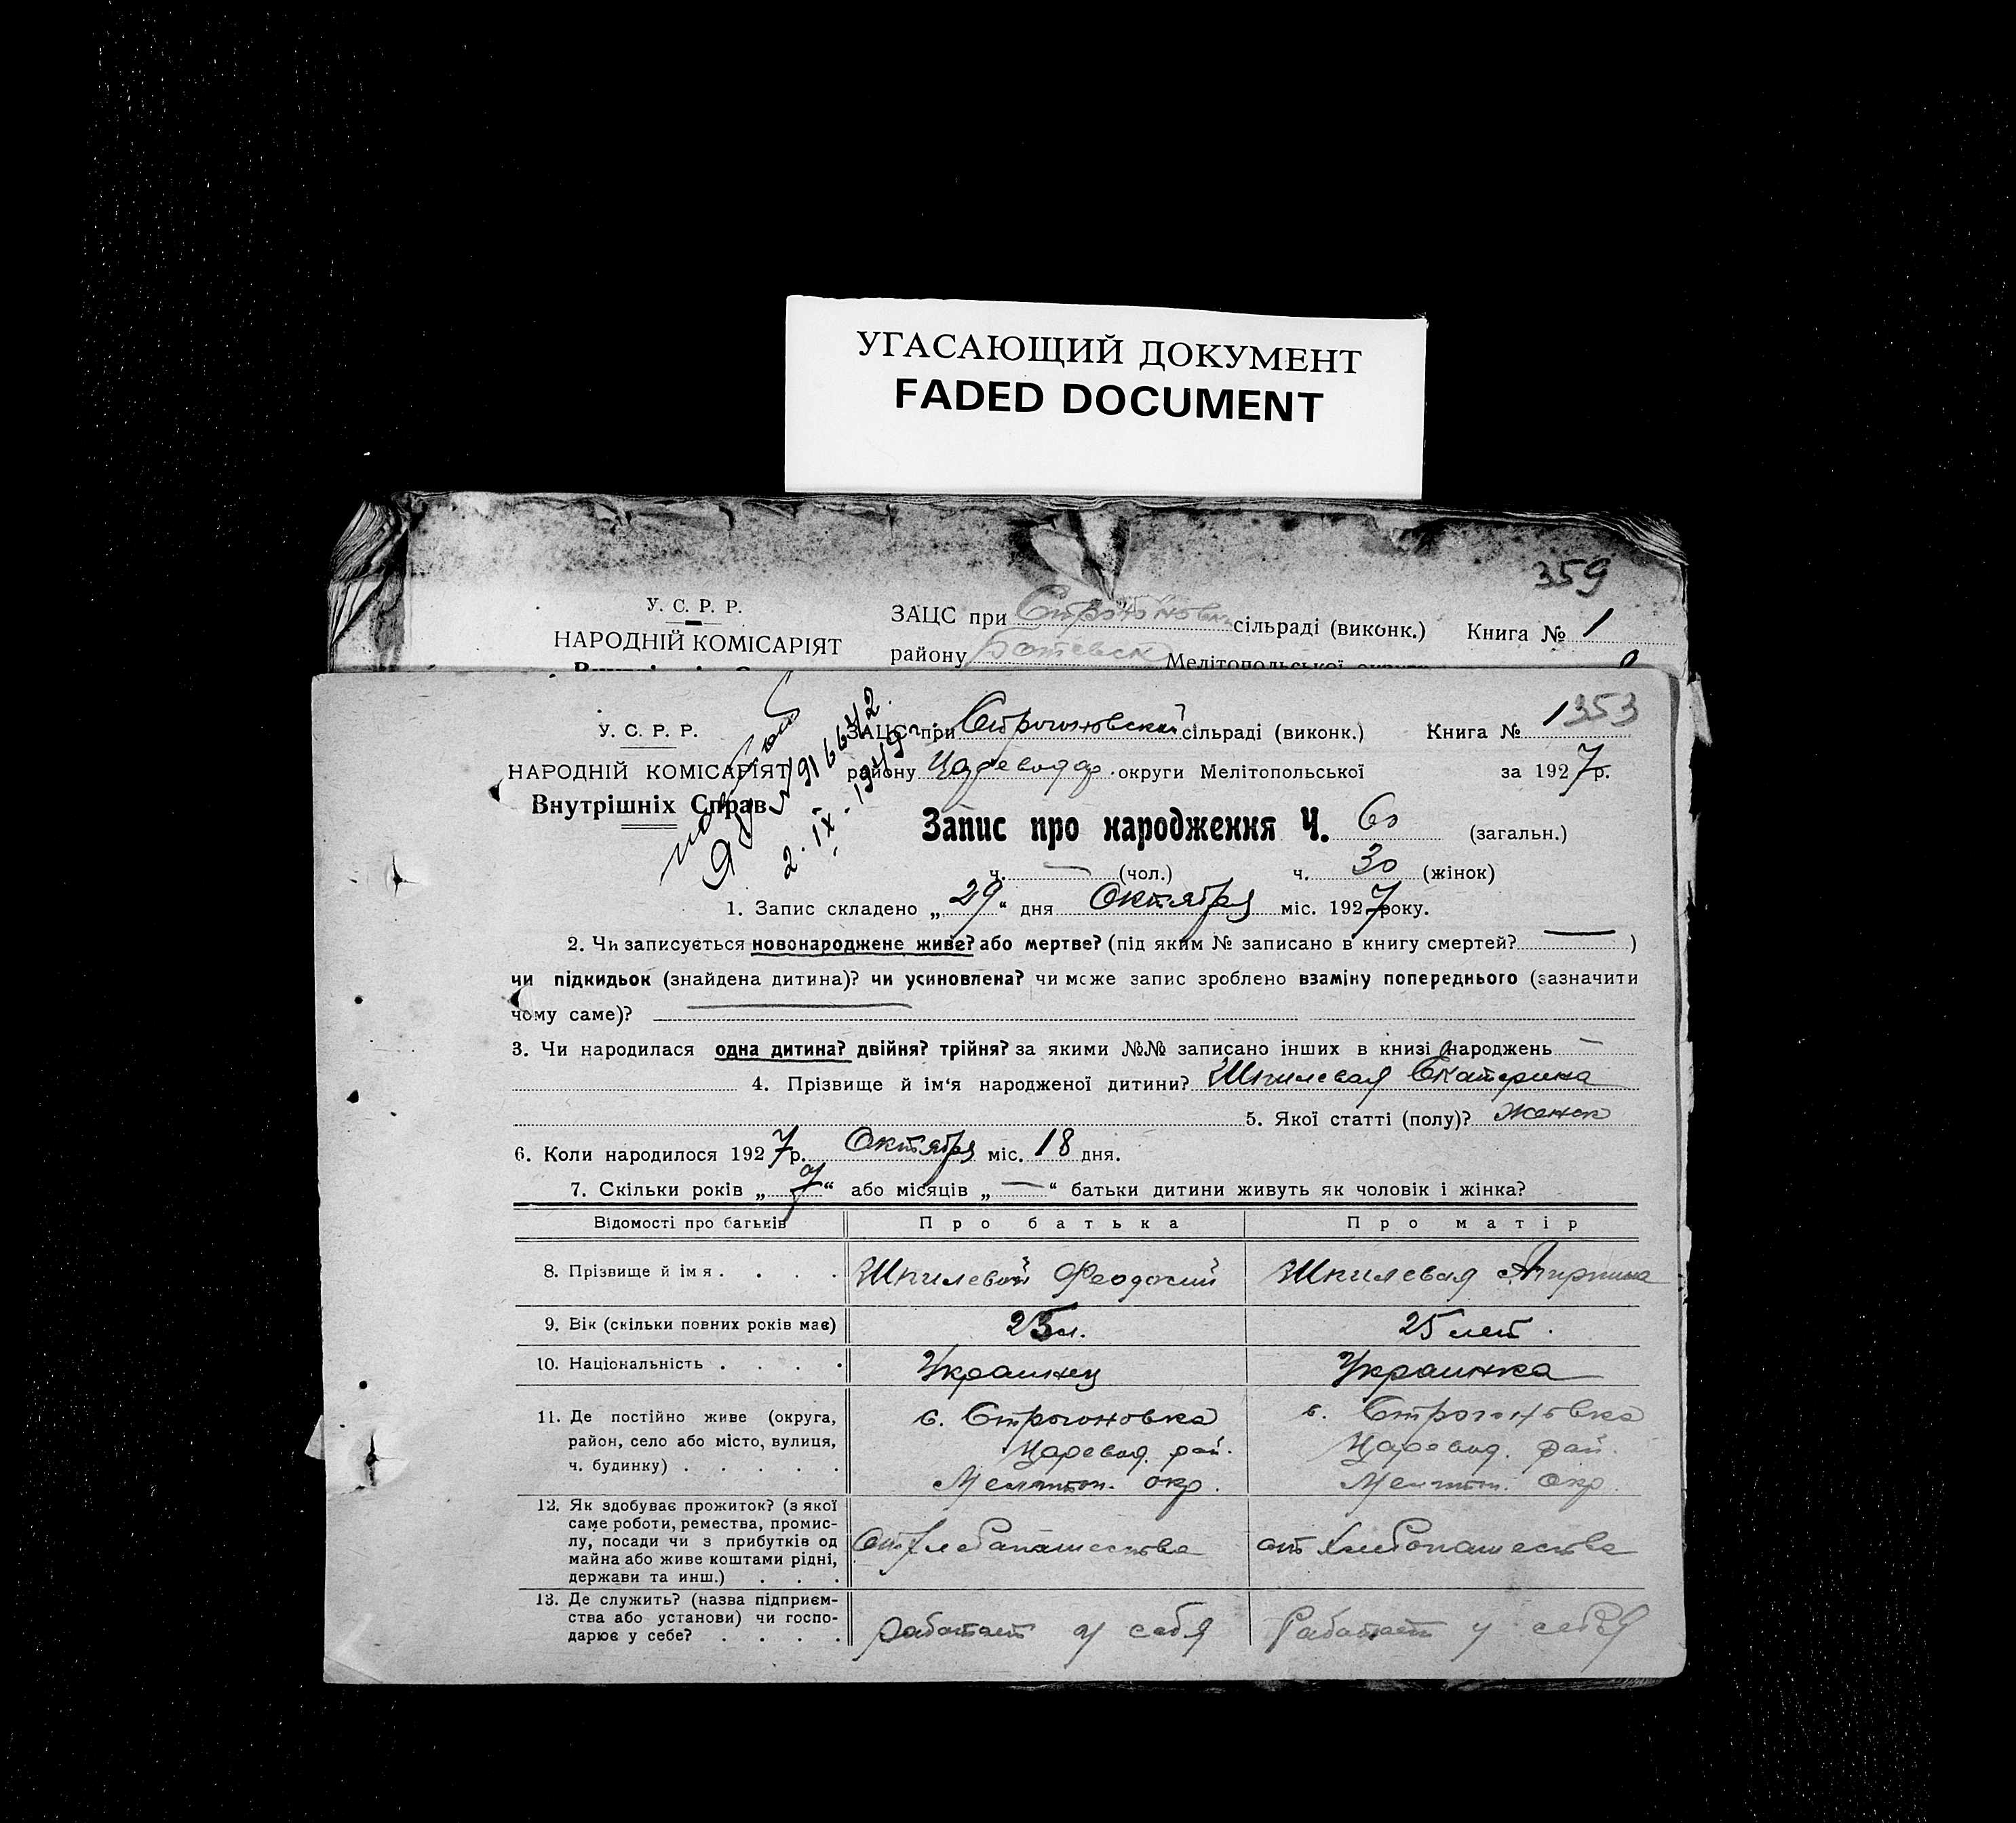 УГАСАЮЩИЙ ДОКУМЕНТ
FADED DOCUMENT
359
У. С. Р. Р.
НАРОДНІЙ КОМІСАРІЯТ
ЗАЦС при Строгоновск сільраді (виконк.) Книга № 1
району Ботевск Мелітопольської округи
1353
У. С. Р. Р.
НАРОДНІЙ КОМІСАРІЯТ
Внутрішніх Справ
2. IX - 1949
ЗАЦС при Строгоновской сільраді (виконк.) Книга №
району Цареводар. округи Мелітопольської за 1927 р.
Запис про народження Ч. 60 (загальн.)
ч. — (чол.) ч. 30 (жінок)
1. Запис складено „29“ дня Октября міс. 1927 року.
2. Чи записується новонароджене живе? або мертве? (під яким № записано в книгу смертей? — )
чи підкидьок (знайдена дитина)? чи усиновлена? чи може запис зроблено взаміну попереднього (зазначити
чому саме)? —
3. Чи народилася одна дитина? двійня? трійня? за якими №№ записано інших в книзі народжень —
4. Прізвище й ім'я народженої дитини? Шпилевая Екатерина
5. Якої статті (полу)? женск
6. Коли народилося 1927 р. Октября міс. 18 дня.
7. Скільки років „7“ або місяців „—“ батьки дитини живуть як чоловік і жінка?
Відомості про батьків Про батька Про матір
8. Прізвище й імя . . . . Шпилевой Феодосий Шпилевая
9. Вік (скільки повних років має) 25 л. 25 лет.
10. Національність . . . . Украинец Украинка
11. Де постійно живе (округа,
район, село або місто, вулиця,
ч. будинку) . . . . .
с. Строгоновка
Царевод. рай.
Мелитоп. окр.
с. Строгоновка
Царевод. рай.
Мелитоп. Окр.
12. Як здобуває прожиток? (з якої
саме роботи, ремества, промис-
лу, посади чи з прибутків од
майна або живе коштами рідні,
держави та инш.) . . .
От хлебопашества
от хлебопашества
13. Де служить? (назва підприєм-
ства або установи) чи госпо-
дарює у себе? . . . .
работает у себя
Работает у себя